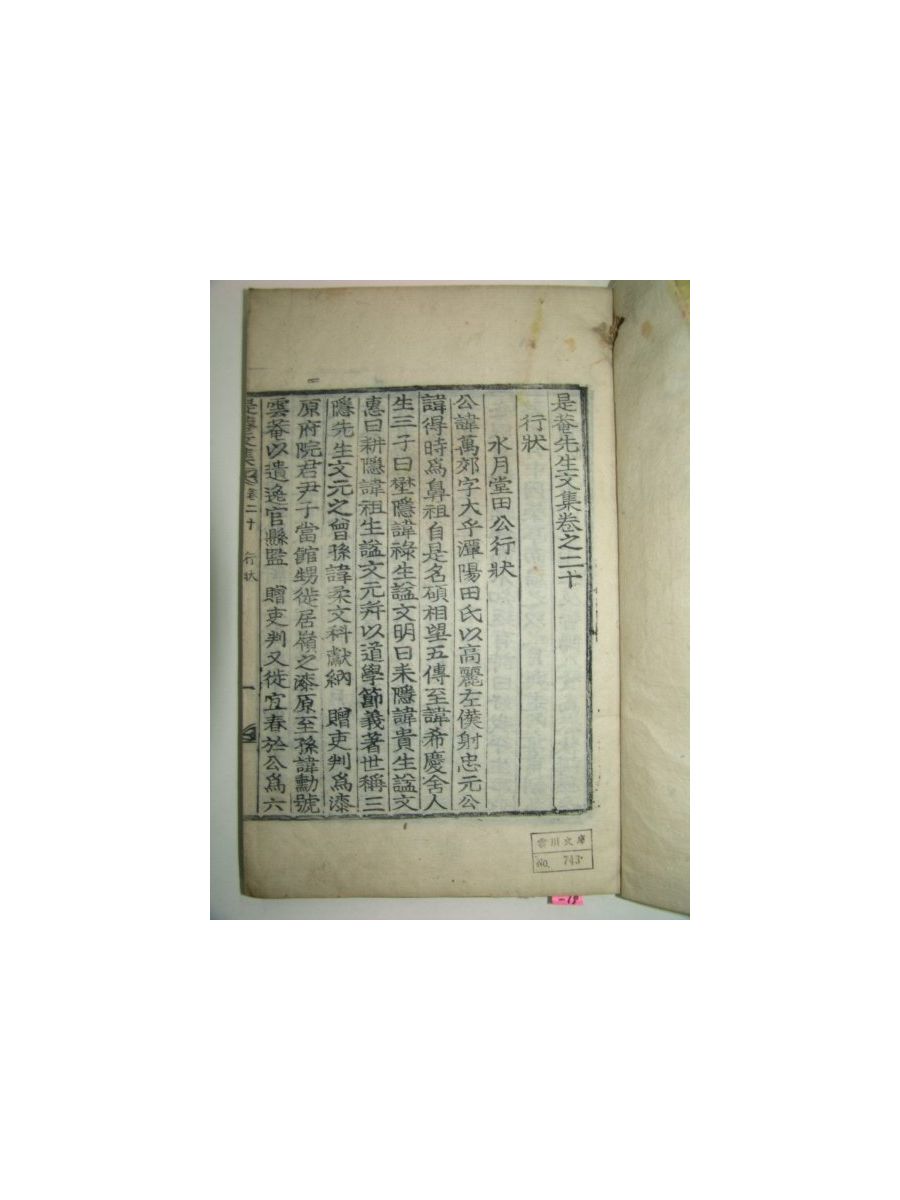 是菴先生文集卷之二十
行狀
水月堂田公行狀
公諱萬郊字大乎潭陽田氏以高麗左僕射忠元公
諱得時爲鼻祖自是名碩相望五傳至諱希慶舍人
生三子曰埜隱諱祿生諡文明曰耒隱諱貴生諡文
惠曰耕隱諱祖生諡文元幷以道學節義著世稱三
隱先生文元之曾孫諱柔文科獻納 贈吏判爲漆
原府院君尹子當館甥徙居嶺之漆原至孫諱勳號
雲菴以遺逸官縣監 贈吏判又徙宜春於公爲六
是菴文集 卷二十 行狀 一
雲川文庫
No. 743
-19